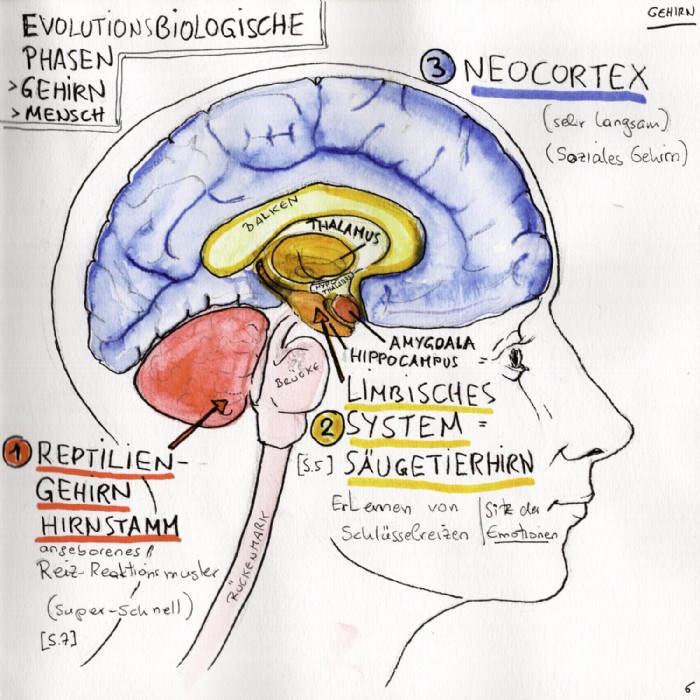 GEHIRN
EVOLUTIONSBIOLOGISCHE
PHASEN
>GEHIRN
>MENSCH
3 NEOCORTEX
(sehr langsam)
(Soziales Gehirn)
BALKEN
THALAMUS
HYPO
THALAMUS
AMYGDALA
HIPPOCAMPUS =
BRÜCKE
LIMBISCHES
2 SYSTEM =
[S.5] SÄUGETIERHIRN
Erlernen von
Schlüsselreizen
Sitz der
Emotionen
1 REPTILIEN-
GEHIRN
HIRNSTAMM
angeborenes
Reiz-Reaktionsmuster
(Super-Schnell)
[S.7]
RÜCKENMARK
6